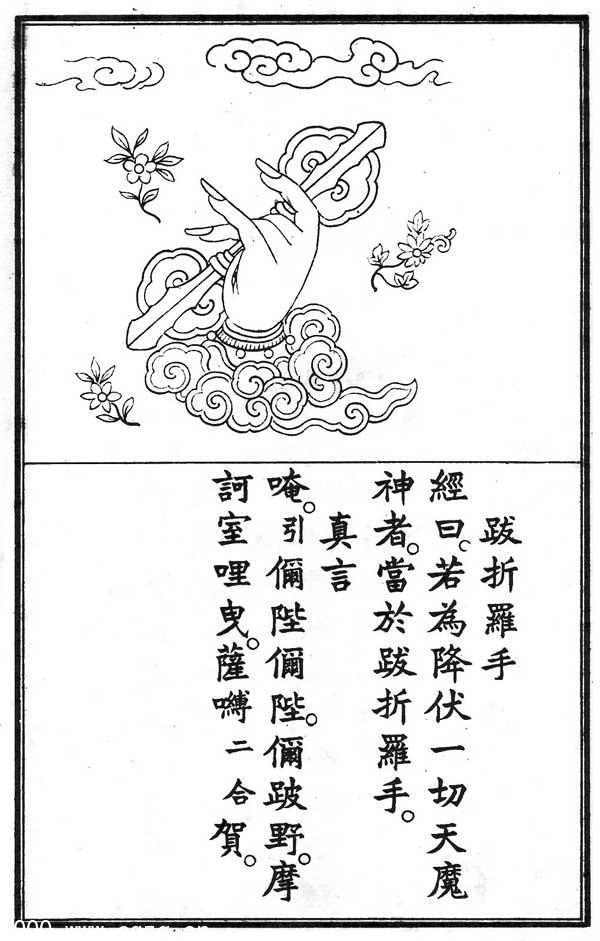 跋折羅手
經曰。若為降伏一切天魔
神者。當於跋折羅手。
真言
唵。引儞陛儞陛。儞跛野。摩
訶室哩曳。薩嚩二合賀。